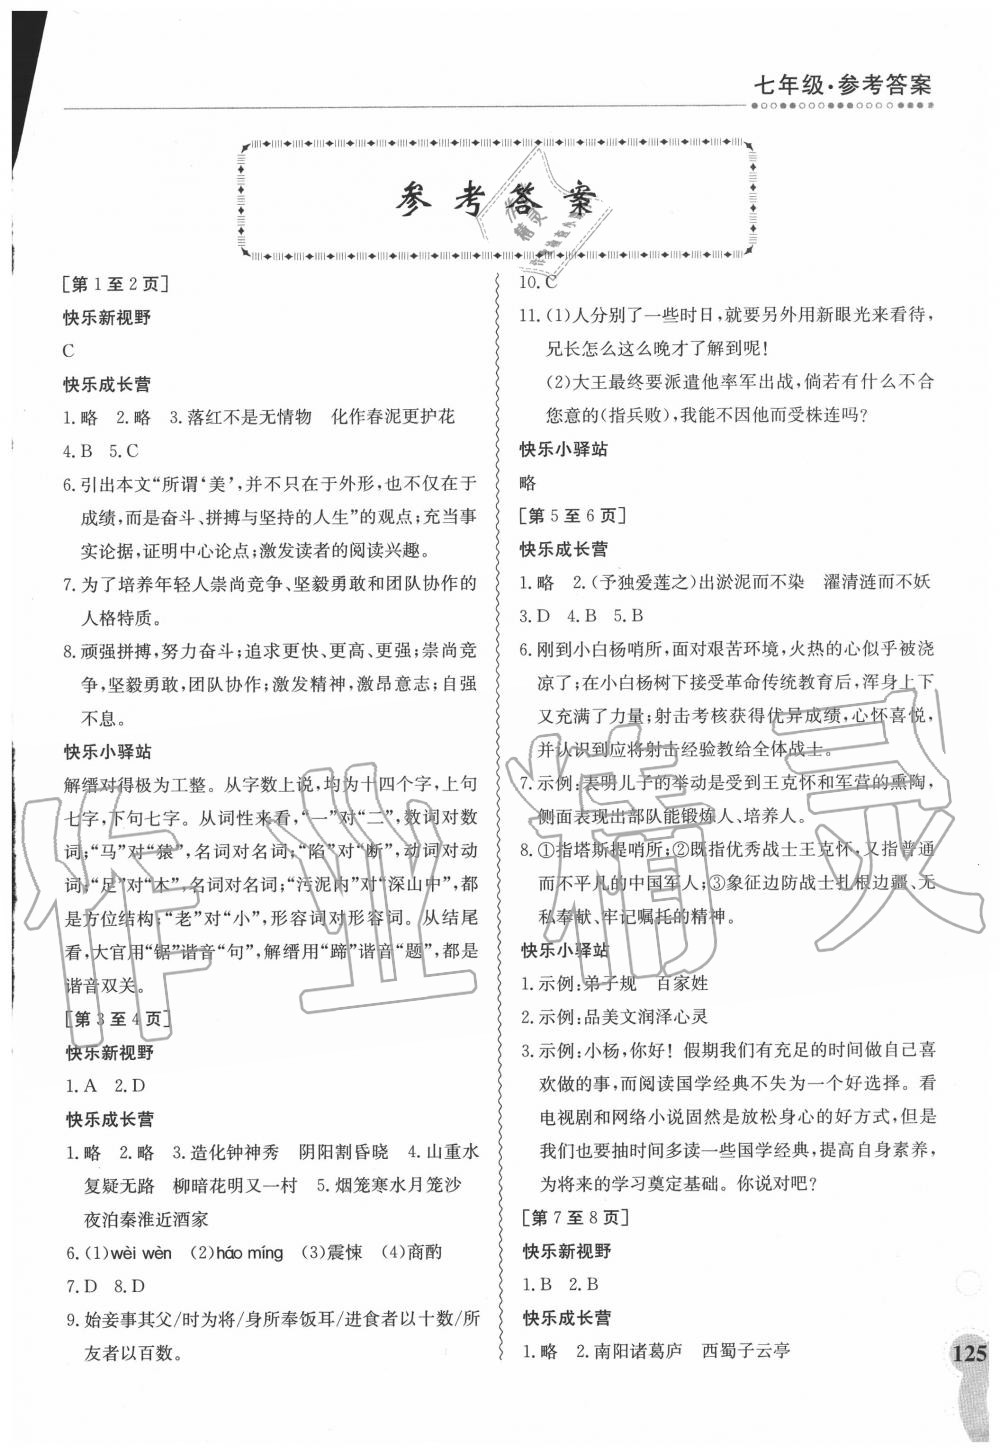 七年级·参考答案
参考答案
[第1至2页]
快乐新视野
C
快乐成长营
1.略 2.略 3.落红不是无情物 化作春泥更护花
4.B 5.C
6.引出本文“所谓‘美’,并不只在于外形,也不仅在于
成绩,而是奋斗、拼搏与坚持的人生”的观点;充当事
实论据,证明中心论点;激发读者的阅读兴趣。
7.为了培养年轻人崇尚竞争、坚毅勇敢和团队协作的
人格特质。
8.顽强拼搏,努力奋斗;追求更快、更高、更强;崇尚竞
争,坚毅勇敢,团队协作;激发精神,激昂意志;自强
不息。
快乐小驿站
解缙对得极为工整。从字数上说,均为十四个字,上句
七字,下句七字。从词性来看,“一”对“二”,数词对数
词;“马”对“猿”,名词对名词;“陷”对“断”,动词对动
词;“足”对“木”,名词对名词;“污泥内”对“深山中”,都
是方位结构;“老”对“小”,形容词对形容词。从结尾
看,大官用“锯”谐音“句”,解缙用“蹄”谐音“题”,都是
谐音双关。
[第3至4页]
快乐新视野
1.A 2.D
快乐成长营
1.略 2.略 3.造化钟神秀 阴阳割昏晓 4.山重水
复疑无路 柳暗花明又一村 5.烟笼寒水月笼沙
夜泊秦淮近酒家
6.(1)wèi wèn (2)háo míng (3)震悚 (4)商酌
7.D 8.D
9.始妾事其父/时为将/身所奉饭耳/进食者以十数/所
友者以百数。
10.C
11.(1)人分别了一些时日,就要另外用新眼光来看待,
兄长怎么这么晚才了解到呢!
(2)大王最终要派遣他率军出战,倘若有什么不合
您意的(指兵败),我能不因他而受株连吗?
快乐小驿站
略
[第5至6页]
快乐成长营
1.略 2.(予独爱莲之)出淤泥而不染 濯清涟而不妖
3.D 4.B 5.B
6.刚到小白杨哨所,面对艰苦环境,火热的心似乎被浇
凉了;在小白杨树下接受革命传统教育后,浑身上下
又充满了力量;射击考核获得优异成绩,心怀喜悦,
并认识到应将射击经验教给全体战士。
7.示例:表明儿子的举动是受到王克怀和军营的熏陶,
侧面表现出部队能锻炼人、培养人。
8.①指塔斯提哨所;②既指优秀战士王克怀,又指普通
而不平凡的中国军人;③象征边防战士扎根边疆、无
私奉献、牢记嘱托的精神。
快乐小驿站
1.示例:弟子规 百家姓
2.示例:品美文润泽心灵
3.示例:小杨,你好!假期我们有充足的时间做自己喜
欢做的事,而阅读国学经典不失为一个好选择。看
电视剧和网络小说固然是放松身心的好方式,但是
我们也要抽时间多读一些国学经典,提高自身素养,
为将来的学习奠定基础。你说对吧?
[第7至8页]
快乐新视野
1.B 2.B
快乐成长营
1.略 2.南阳诸葛庐 西蜀子云亭
125
作业精灵